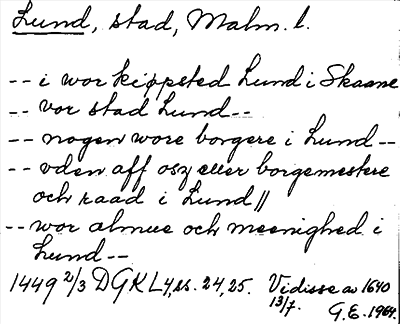 Lund, stad, Malm. l.
-- i wor kiøpsted Lund i Skaane
-- vor stad Lund --
-- nogen wore borgere i Lund --
-- vden aff osz eller borgemestere
och raad i Lund //
-- wor almue och meenighed i
Lund --
1449 2/3 DGKL 4, ss. 24, 25. Vidisse av 1640
13/7. G.E. 1964.